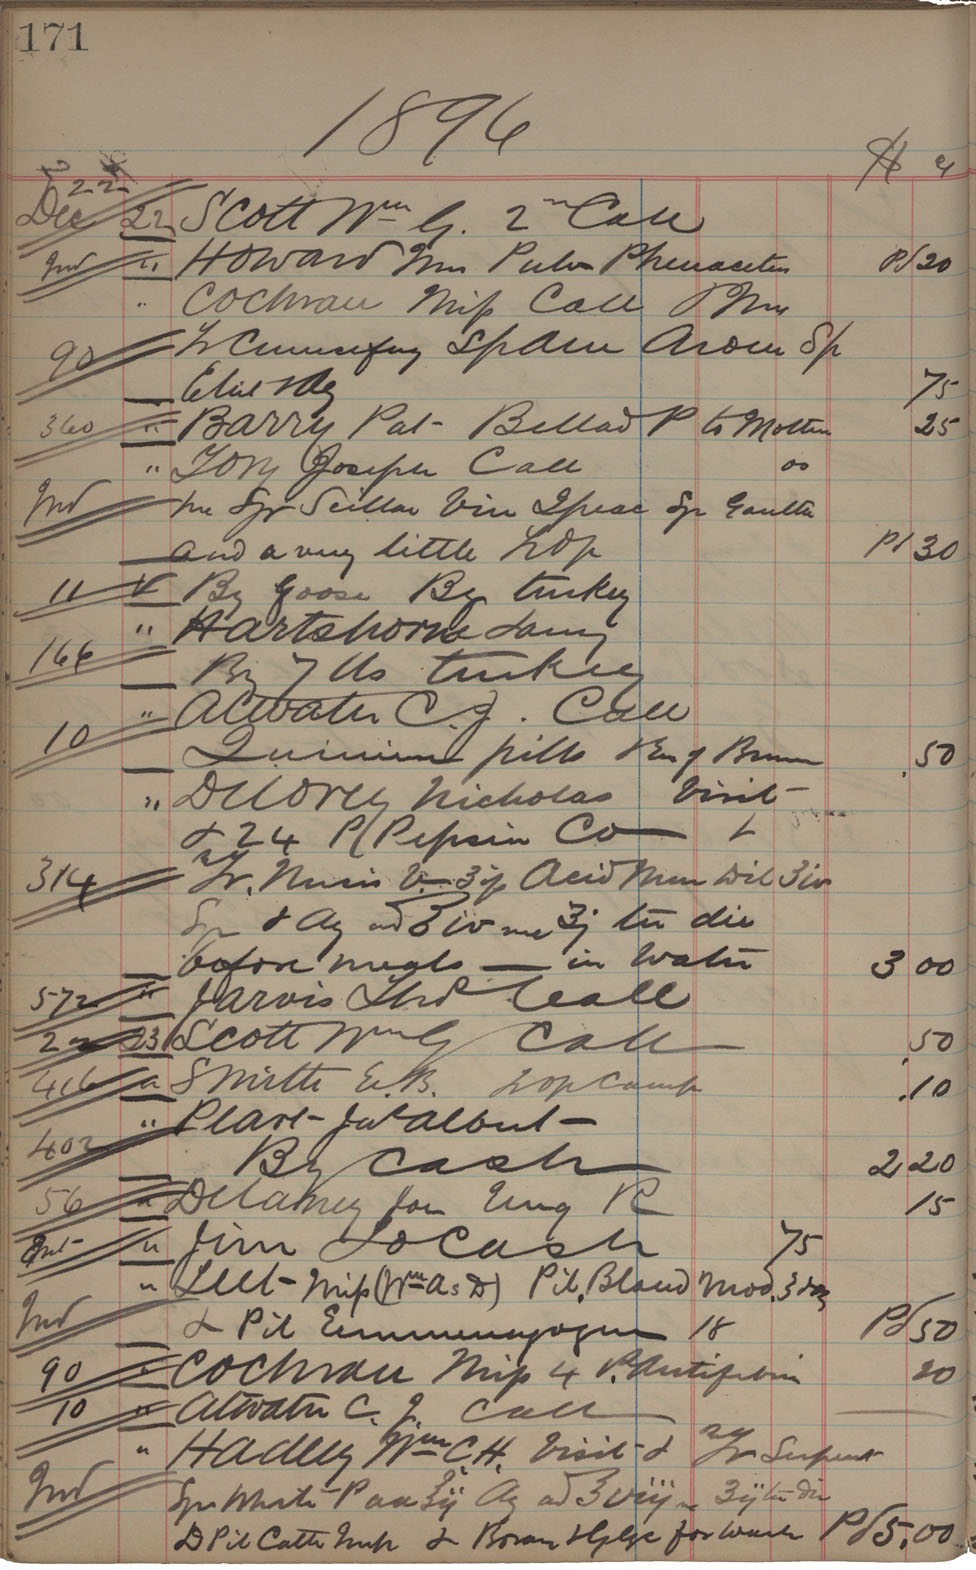 171
1896
$ c
22
Dec 22 Scott Wm G. 2nd Call
Ind " Howard Wm Pulv Phenacetin Pd 20
" Cochran Miss Call
90 Tr Cimicifug Sp Aeth Arom Sp
75
360 " Barry Pat- Bellad P to Mother 25
" Tory Joseph Call oo
Ind Syr Scillae Vin Ipecac Sp Gaulth
and a very little Pd 30
11 By Goose By turkey
" Hartshorne
166 By 7 lbs turkey
" Atwater C. J. Call
10 Quinine pills .50
" Delorey Nicholas Visit
& 24 P Pepsin Co
314 Tr. Nucis V. ʒij Acid Mur Dil ʒiv
& Aq ad ℥iv ʒj ter die
before meals — in Water 3 00
572 " Jarvis Thd Call
22 23 Scott Wm G Call .50
416 " Smith E. B. Camph .10
" Plant- Jas Albert-
402 By Cash 2 20
56 " Delaney Jon Ung R 15
Ent- " Jim To Cash 75
" Leet- Miss (Wm A's D) Pil. Blaud Mod.
Ind & Pil Emmenagogue 18 Pd 50
90 " Cochran Miss 4 P. Antifebrin 20
10 " Atwater C. J. Call
" Hadley Wm C. H. Visit & Serpent
Ind Syr White P aa ʒij Aq ad ℥viij ʒij ter die
D Pil Cath Imp & Borax & Glyc for Wash Pd 5.00